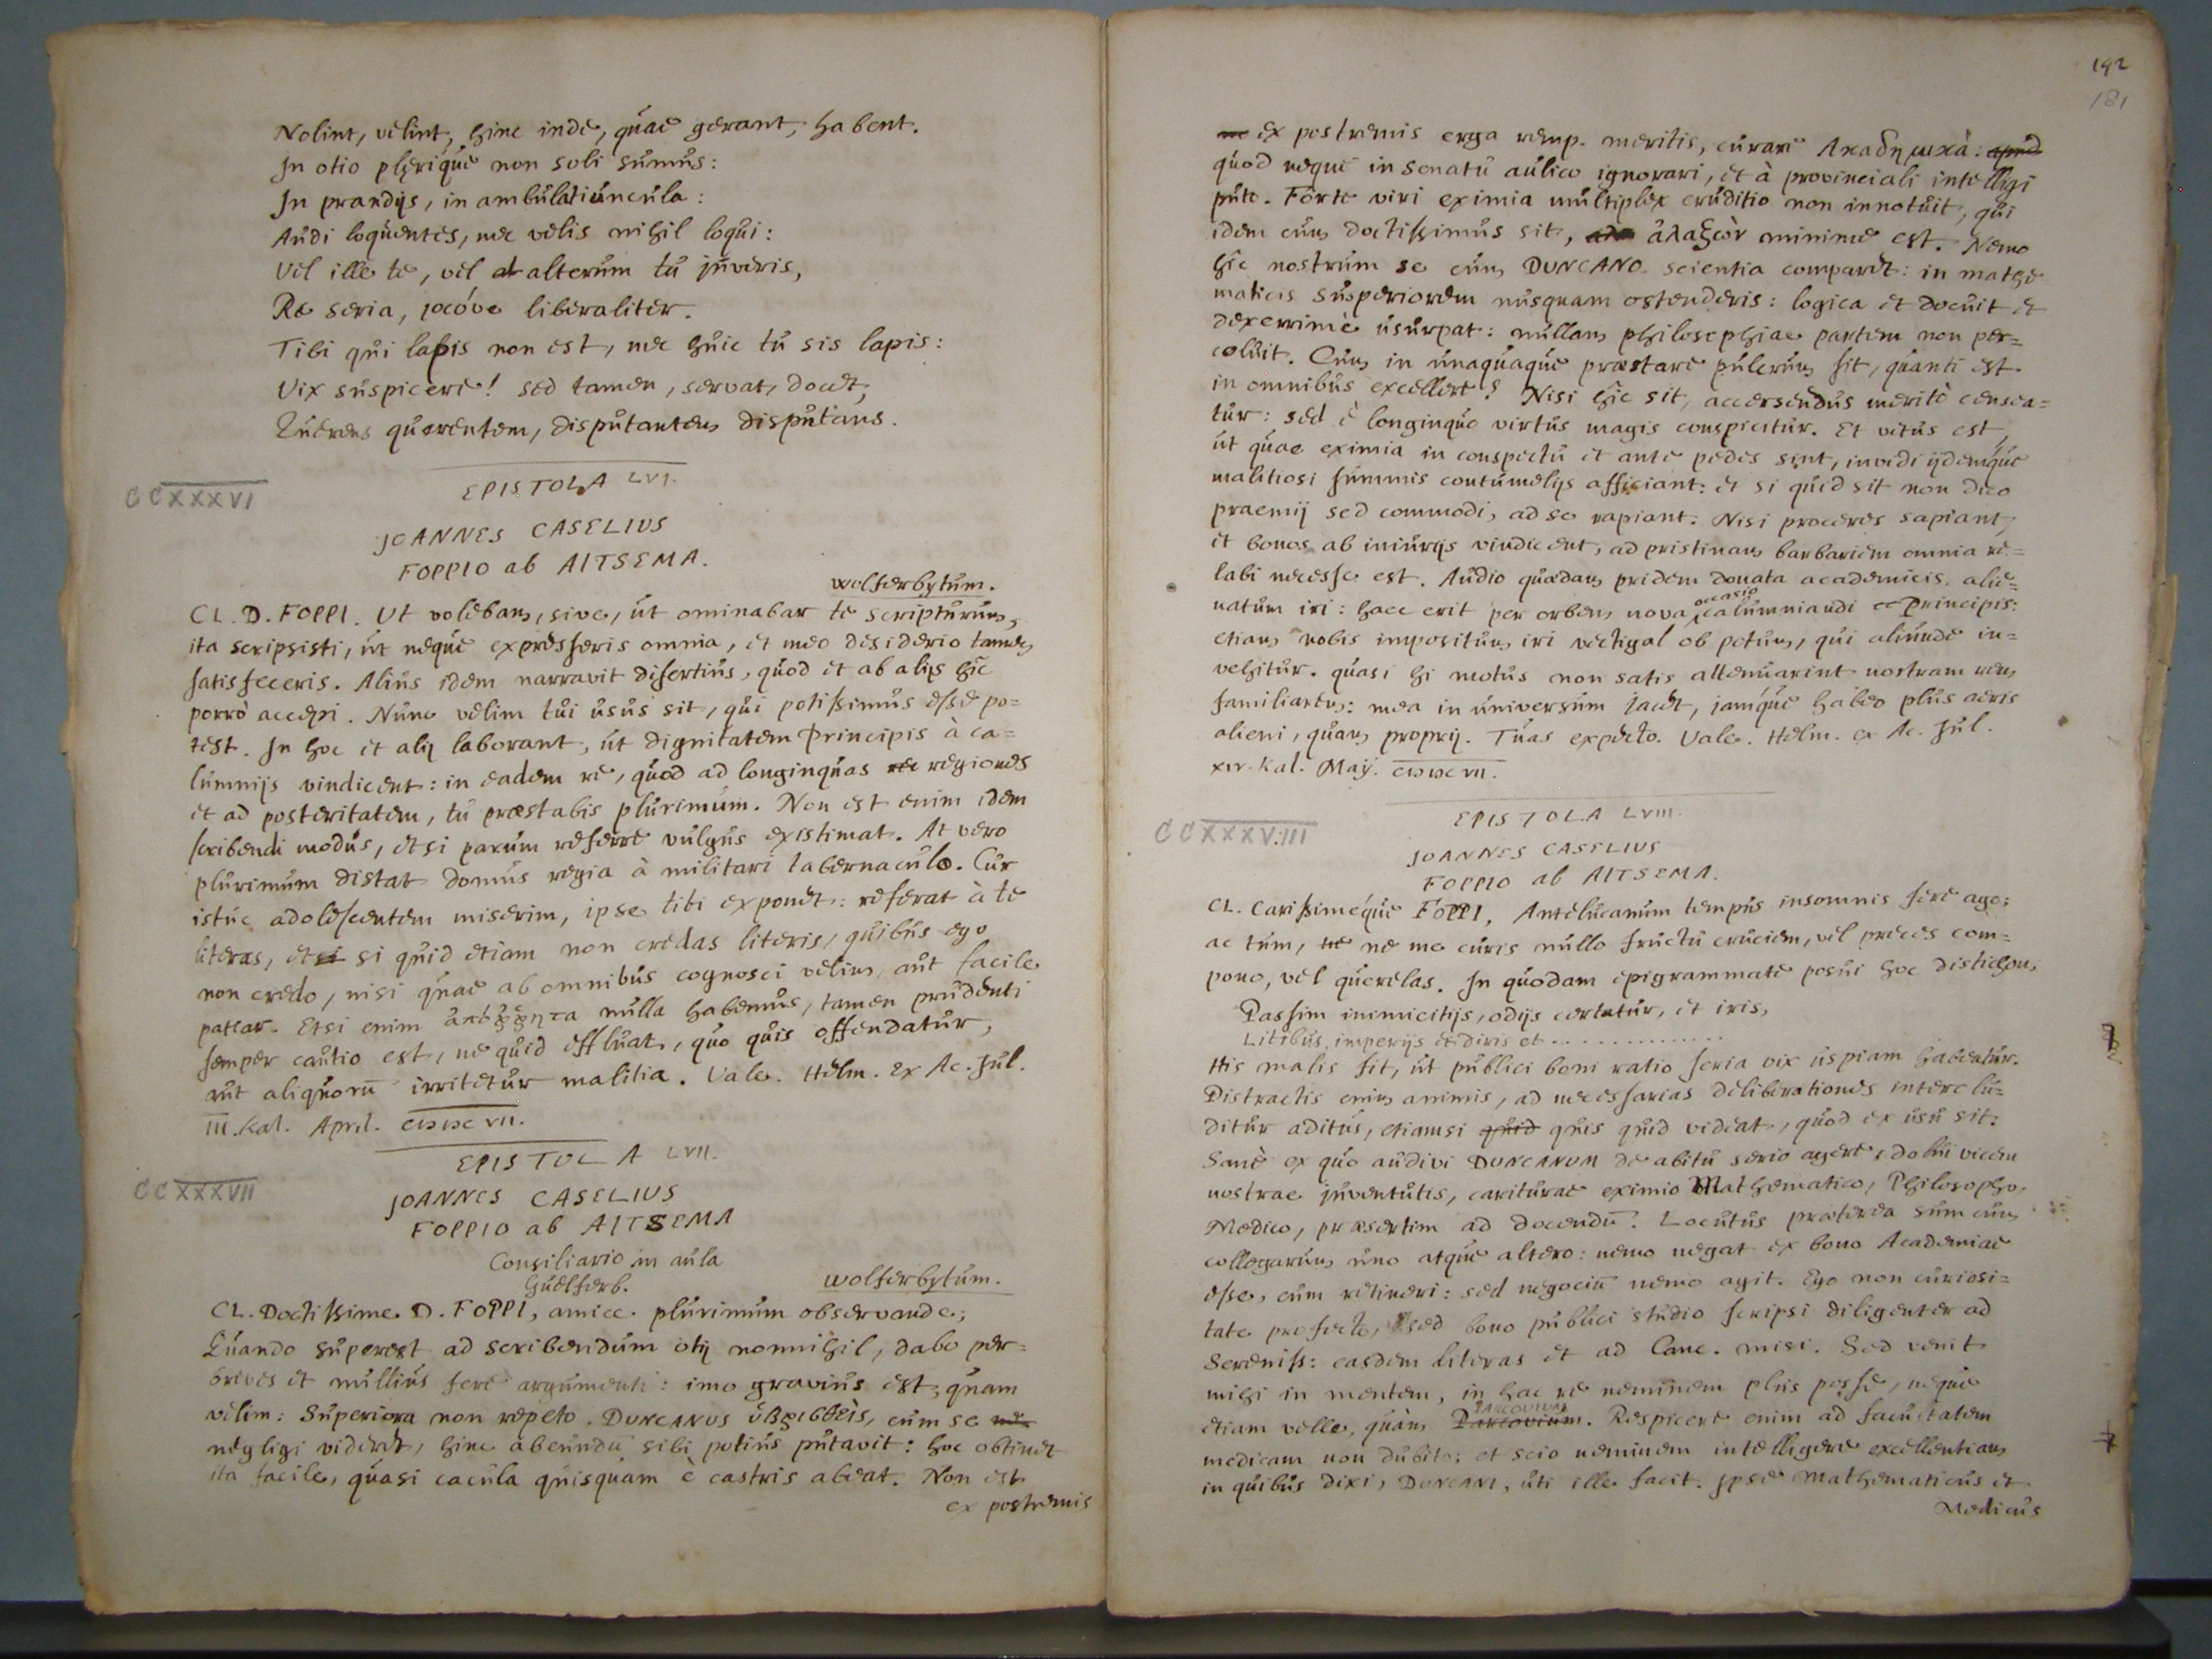 Nolint, velint, hinc inde, quae gerant, habent.
In otio plerique non soli sumus:
In prandijs, in ambulatiuncula:
Audi loquentes, nec velis nihil loqui:
Vel ille te, vel alterum tu juveris,
Re seria, jocóve liberaliter.
Tibi qui lapis non est, nec huic tu sis lapis:
Vix suspicere! sed tamen, servat, docet,
Quaerens querentem, disputantem disputans.
CCXXXVI
EPISTOLA LVI.
JOANNES CASELIUS
FOPPIO ab AITSEMA.
wolferbytum.
CL. D. FOPPI. Ut volebam, sive, ut ominabar te scripturum,
ita scripsisti, ut neque expresseris omnia, et meo desiderio tamen
satisfeceris. Alius idem narravit disertius, quod et ab alijs hîc
porrò accepi. Nunc velim tui usus sit, qui potissimus esse po=
test. In hoc et alij laborant, ut dignitatem Principis à ca=
lumnijs vindicent: in eadem re, quod ad longinquas regiones
et ad posteritatem, tu præstabis plurimum. Non est enim idem
scribendi modus, etsi parum referre vulgus existimat. At vero
plurimum distat domus regia à militari tabernaculo. Cur
istuc adolescentem miserim, ipse tibi exponet: referat à te
literas, et si quid etiam non credas literis, quibus ego
non credo, nisi quae ab omnibus cognosci velim, aut facile
patiar. Etsi enim ἀπόῤῥητα nulla habemus, tamen prudenti
semper cautio est, ne quid effluat, quo quis offendatur,
aut aliquorū irritetur malitia. Vale. Helm. Ex Ac. Jul.
III. Kal. April. CIↃIↃC VII.
CCXXXVII
EPISTOLA LVII.
JOANNES CASELIUS
FOPPIO ab AITSEMA
Consiliario in aula
Guelferb.
wolferbytum.
CL. Doctissime D. FOPPI, amice plurimum observande;
Quando superest ad scribendum otij nonnihil, dabo per=
breves et nullius fere argumenti: imo gravius est, quam
velim: Superiora non repeto. DUNCANUS ὑβρισθεὶς, cum se
negligi videret, hinc abeundū sibi potius putavit: hoc obtinet
ita facile, quasi cacula quisquam è castris abeat. Non est
ex postremis
192
181
ex postremis erga remp. meritis, curare Ἀκαδημικὰ:
quod neque in senatu aulico ignorari, et à provinciali intelligi
puto. Forte viri eximia multiplex eruditio non innotuit, qui
idem cum doctissimus sit, ἀλαζὼν minime est. Nemo
hîc nostrum se cum DUNCANO scientia comparet: in mathe
maticis superiorem nusquam ostenderis: logica et docuit et
dexerrimè usurpat: nullam philosophiae partem non per=
coluit. Cum in unaquaque præstare pulcrum sit, quanti est
in omnibus excellere? Nisi hîc sit, accersendus meritò censea=
tur: sed è longinquo virtus magis conspicitur. Et vetus est,
ut quae eximia in conspectu et ante pedes sint, invidi ijdemque
malitiosi summis contumelijs afficiant: et si quid sit non dico
praemij sed commodi, ad se rapiant. Nisi proceres sapiant,
et bonos ab iniurijs vindicent, ad pristinam barbariem omnia re=
labi necesse est. Audio quædam pridem donata academicis, alie=
natum iri: haec erit per orbem nova occasio calumniandi Principis:
etiam nobis impositum iri vectigal ob potum, qui aliunde in=
vehitur. quasi hi motus non satis attenuarint nostram rem
familiarem: mea in universum jacet, jamque habeo plus aeris
alieni, quam proprij. Tuas expecto. Vale. Helm. ex Ac. Jul.
XIV. Kal. Maij. CIↃIↃC VII.
CCXXXVIII
EPISTOLA LVIII.
JOANNES CASELIUS
FOPPIO ab AITSEMA.
CL. Carissimeque FOPPI, Antelucanum tempus insomnis fere ago:
ac tum, ne me curis nullo fructu cruciem, vel preces com=
pono, vel querelas. In quodam epigrammate posui hoc distichon,
Passim inimicitijs, odijs certatur, et iris,
Litibus, imperijs et diris et ..............
His malis fit, ut publici boni ratio seria vix uspiam habeatur.
Distractis enim animis, ad necessarias deliberationes interclu=
ditur aditus, etiamsi quis quid videat, quod ex usu sit.
Sanè ex quo audivi DUNCANUM de abitu serio agere, dolui vicem
nostrae juventutis, cariturae eximio Mathematico, Philosopho,
Medico, præsertim ad docendū. Locutus præterea sum cum
collegarum uno atque altero: nemo negat ex bono Academiae
esse, eum retineri: sed negociū nemo agit. Ego non curiosi=
tate profecto, sed bono publici studio scripsi diligenter ad
Sereniss: easdem literas et ad Canc. misi. Sed venit
mihi in mentem, in hac re neminem plus posse, neque
etiam velle, quàm PARCOVIUM. Respicere enim ad facultatem
medicam non dubito; et scio neminem intelligere excellentiam
in quibus dixi, DUNCANI, uti ille facit. Ipse Mathematicus et
Medicus